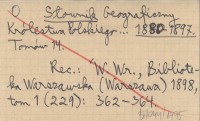 O Słownik Geograficzny
Królestwa Polskiego... 1880-1897.
Tomów 14.
Rec.: W. Wr., Bibliote-
ka Warszawska (Warszawa) 1898,
tom 1 (229): 362-364.